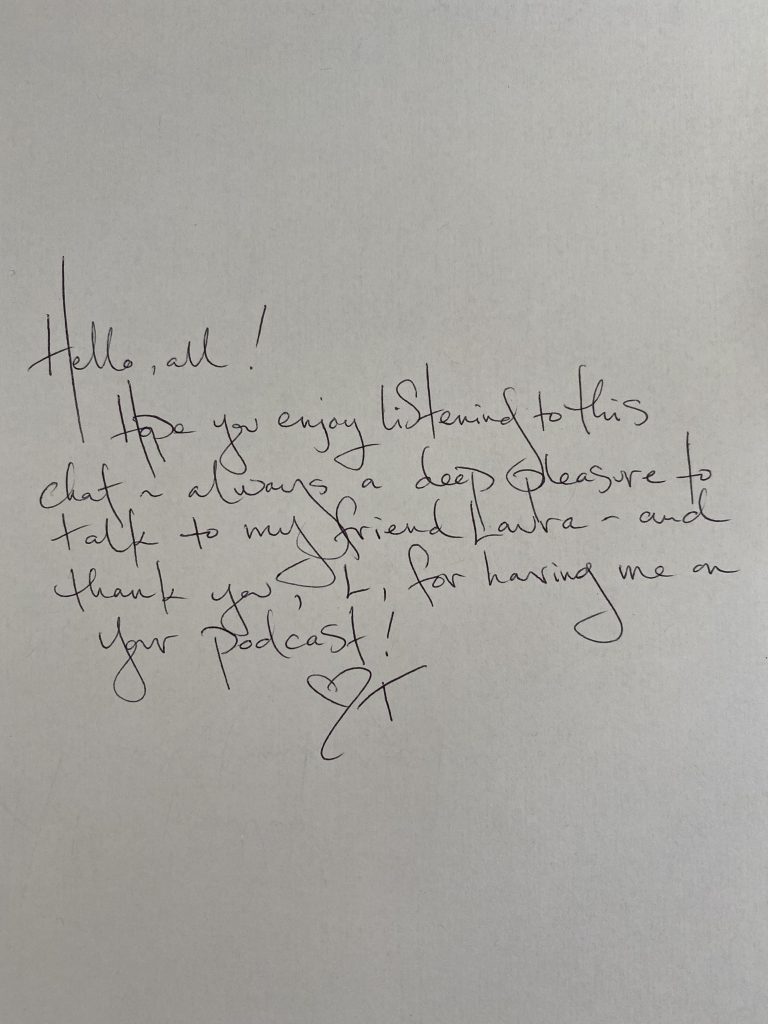 Hello, all!
Hope you enjoy listening to this
chat ~ always a deep pleasure to
talk to my friend Laura - and
thank you, L, for having me on
your podcast!
♡T